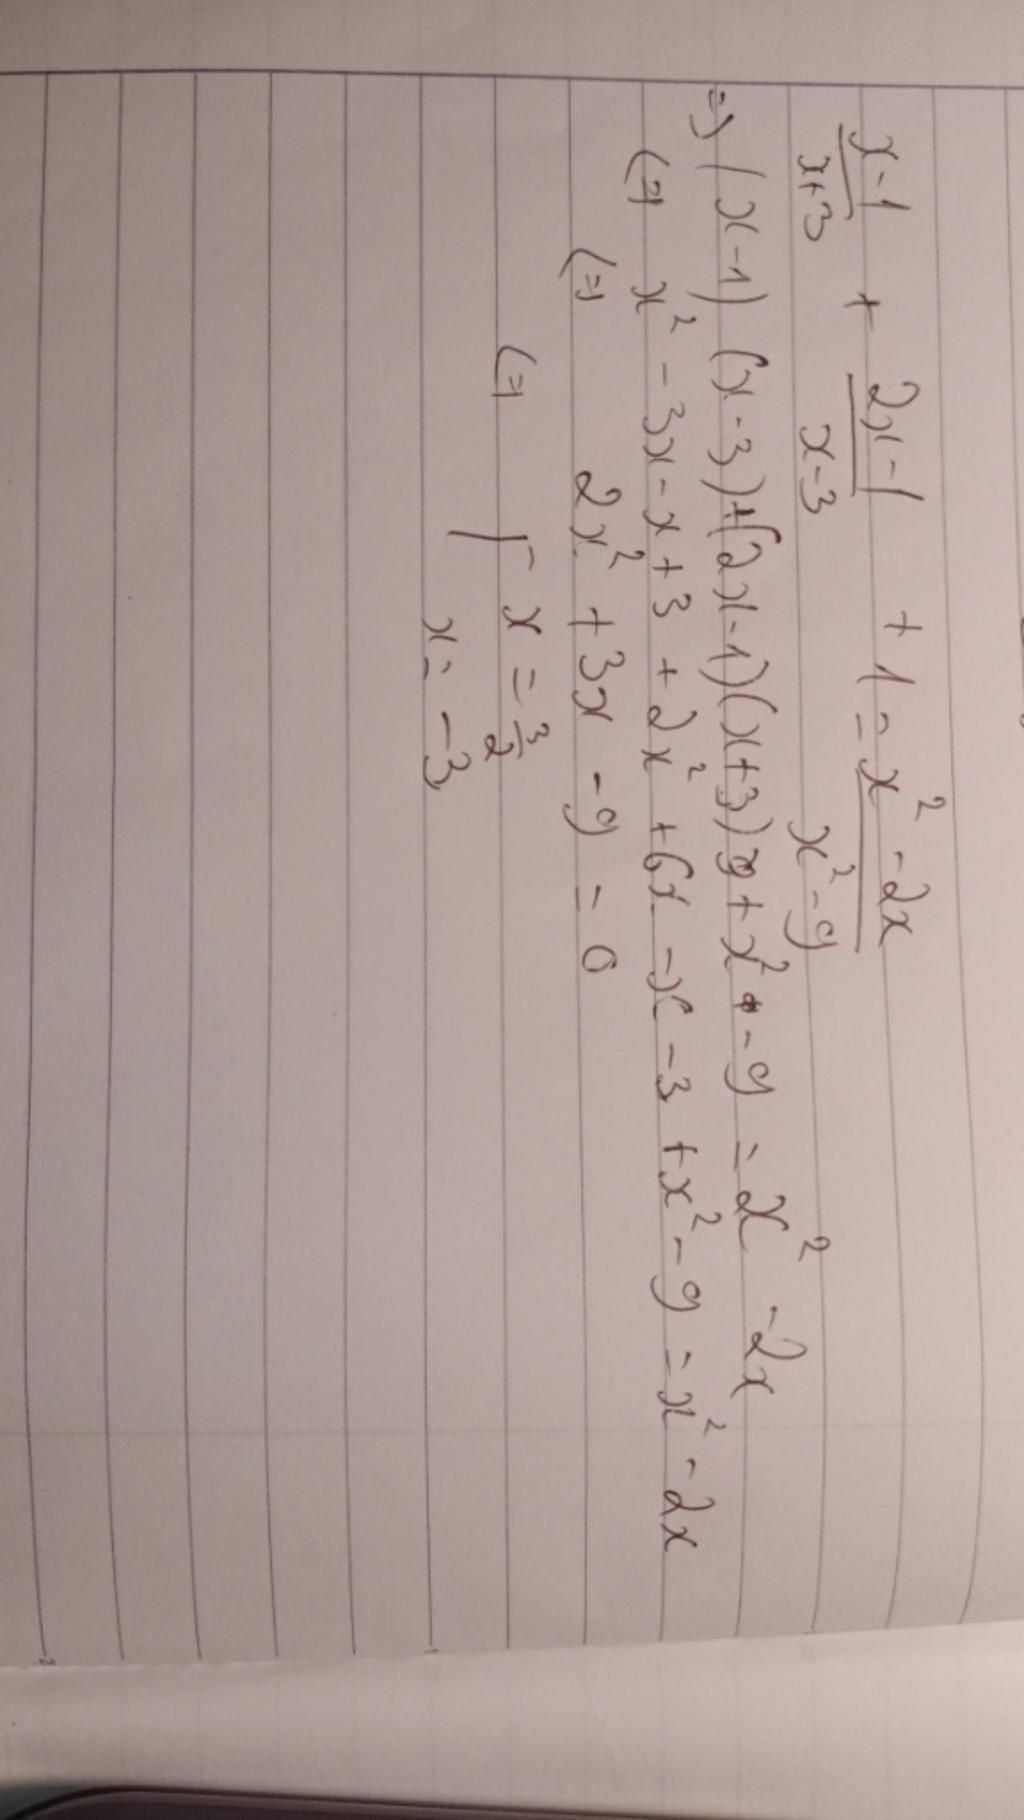 x-1/x+3 + 2x-1/x-3 + 1 = x²-2x/x²-9
=> (x-1) (x-3)+(2x-1)(x+3) + x² - 9 = x² - 2x
(=) x² - 3x - x + 3 + 2x² + 6x - x - 3 + x² - 9 = x² - 2x
(=) 2x² + 3x - 9 = 0
(=) [ x = 3/2
x = -3